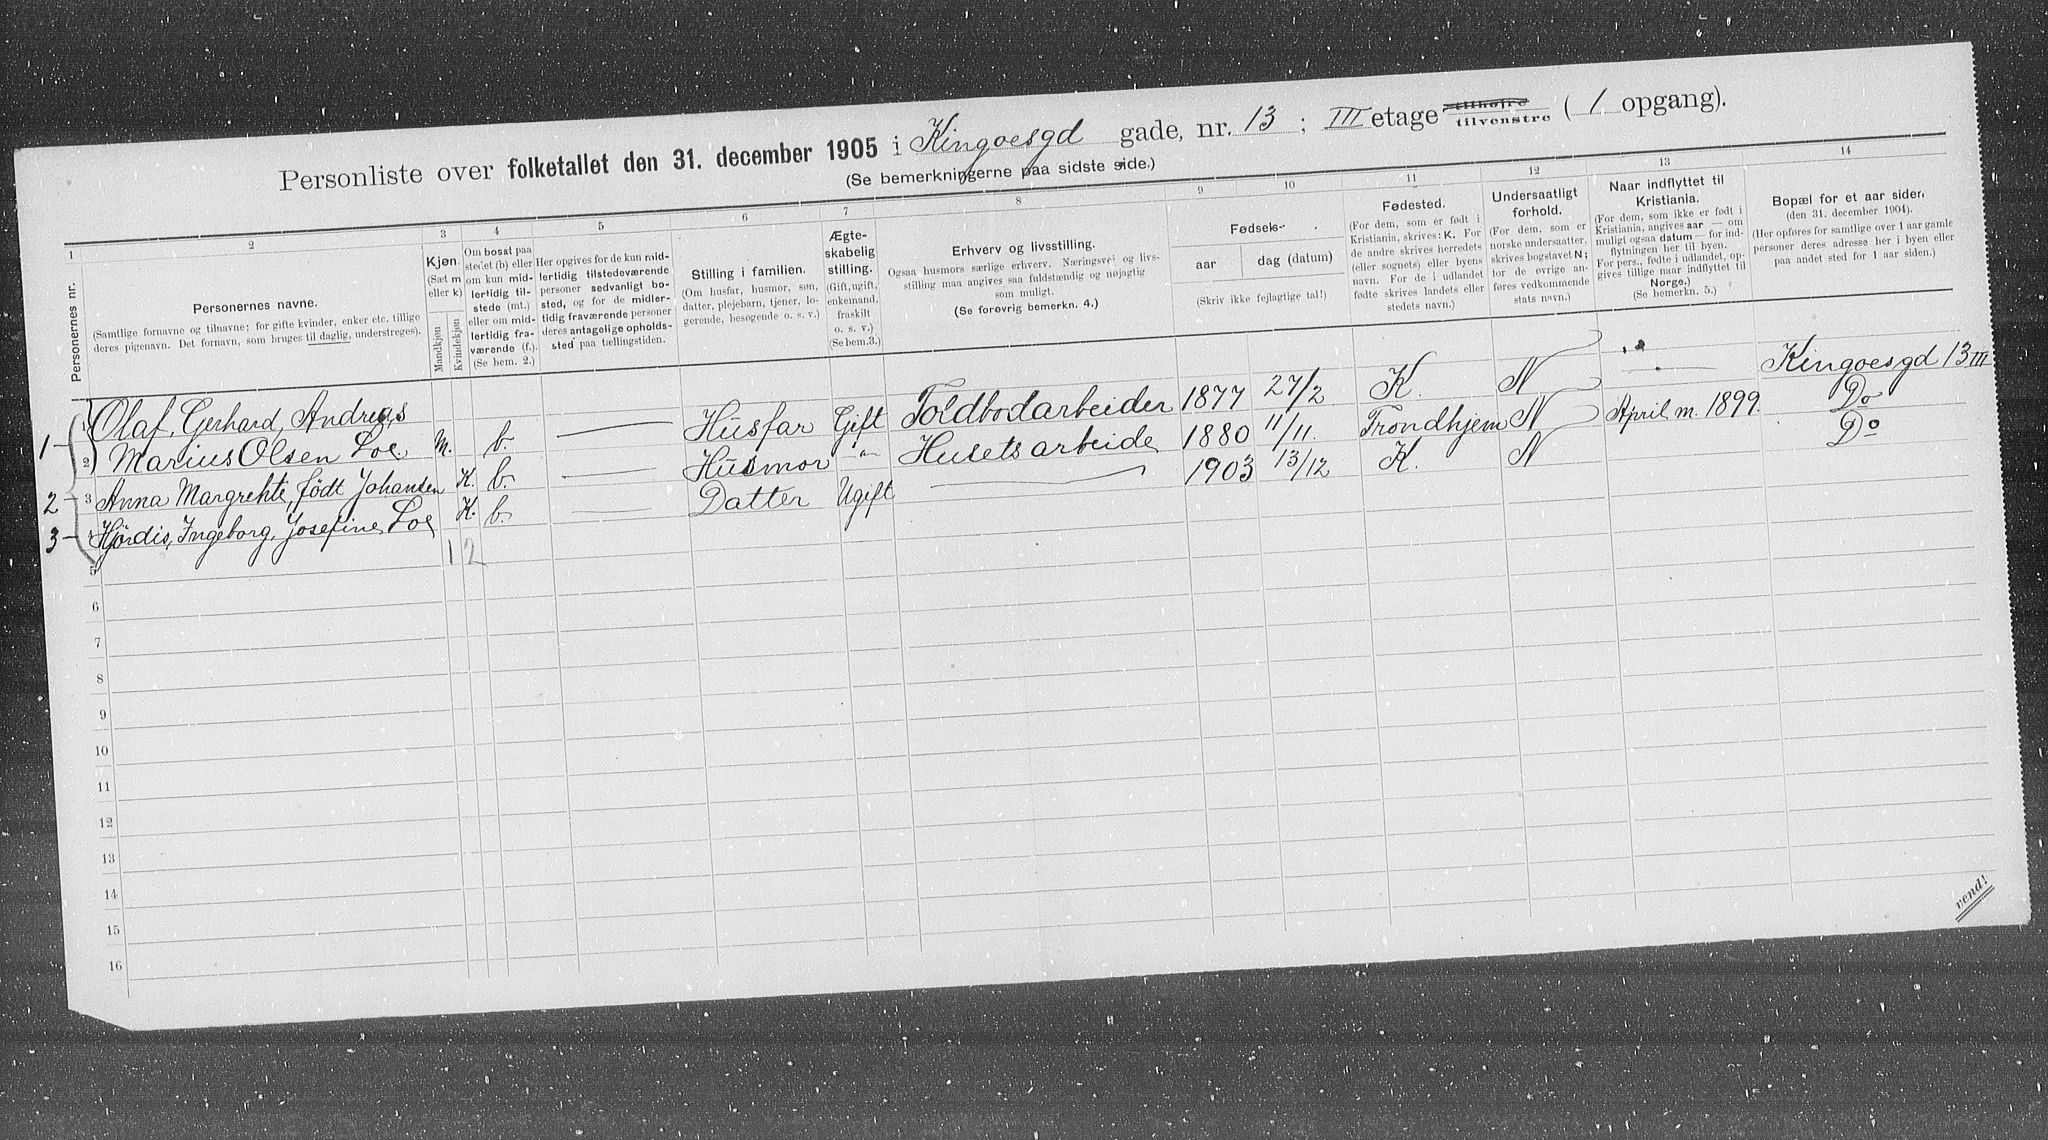 Personliste over folketallet den 31. december 1905 i Kingoesgd gade, nr. 13 ; III etage tilhøjre tilvenstre ( 1 opgang).
(Se bemerkningerne paa sidste side.)
1 2 3 4 5 6 7 8 9 10 11 12 13 14
Personernes nr.
Personernes navne.
(Samtlige fornavne og tilnavne; for gifte kvinder, enker etc. tillige
deres pigenavn. Det fornavn, som bruges til daglig, understreges).
Kjøn.
(Sæt m
eller k)
Mandkjøn
Kvindekjøn
Om bosat paa
stedet (b) eller
om kun mid-
lertidig til-
stede (mt.)
eller om mid-
lertidig fra-
værende (f.).
(Se bem. 2.)
Her opgives for de kun mid-
lertidig tilstedeværende
personer sedvanligt bo-
sted, og for de midler-
tidig fraværende personer
deres antagelige opholds-
sted paa tællingstiden.
Stilling i familien.
(Om husfar, husmor, søn,
datter, plejebarn, tjener, lo-
gerende, besøgende o. s. v.)
Ægte-
skabelig
stilling.
(Gift, ugift,
enkemand,
fraskilt
o. s. v.)
(Se bem.3.)
Erhverv og livsstilling.
Ogsaa husmors særlige erhverv. Næringsvei og livs-
stilling maa angives saa fuldstændig og nøjagtig
som muligt.
(Se forøvrig bemerkn. 4.)
Fødsels-
aar
dag (datum)
(Skriv ikke fejlagtige tal!)
Fødested.
(For dem, som er født i
Kristiania, skrives: K. For
de andre skrives herredets
(eller sognets) eller byens
navn. For de i udlandet
fødte skrives landets eller
stedets navn.)
Undersaatligt
forhold.
(For dem, som er
norske undersaatter,
skrives bogstavet N;
for de øvrige an-
føres vedkommende
stats navn.)
Naar indflyttet til
Kristiania.
(For dem, som ikke er født i
Kristiania, angives aar — om
muligt ogsaa datum — for ind-
flytningen her til byen.
For pers., fødte i udlandet, op-
gives tillige naar indflyttet til
Norge.)
(Se bemerkn. 5.)
Bopæl for et aar siden
(den 31. december 1904).
(Her opføres for samtlige over 1 aar gamle
personer deres adresse her i byen eller
paa andet sted for 1 aar siden.)
1 Olaf, Gerhard, Andreas
1 2 Marius Olsen Loe. M. b. Husfar Gift Toldbodarbeider 1877 27/2 K. N Kingoesgd 13 III
2 3 Anna Margrehte, født Johansen K. b. Husmor Husets arbeide 1880 11/11. Trondhjem N April m. 1899. Do
3 Hjørdis, Ingeborg, Josefine Loe K. b. Datter Ugift 1903 13/12 K. N Do
5 1 2
6
7
8
9
10
11
12
13
14
15
16
vend!